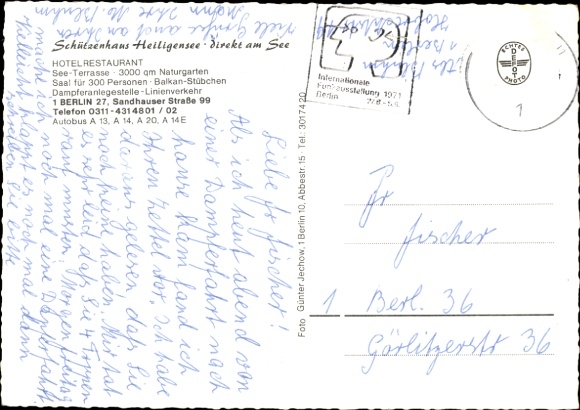 Schützenhaus Heiligensee · Direkt am See
HOTELRESTAURANT
See-Terrasse · 3000 qm Naturgarten
Saal für 300 Personen · Balkan-Stübchen
Dampferanlegestelle - Linienverkehr
1 BERLIN 27, Sandhauser Straße 99
Telefon 0311-4314801 / 02
Autobus A 13, A 14, A 20, A 14E
Liebe Fr Fischer!
Als ich heut abend von
einer Dampferfahrt nach
hause kam fand ich
Ihren Zettel vor. Ich habe
daraus gelesen daß Sie
noch Ferien haben. Mir tat
es sehr leid daß Sie 4 Treppen
rauf mussten. Morgen Freitag
mache ich noch mal eine Dampferfahrt
vielleicht klappt es noch mal dann
schreiben Sie bitte
Viele Grüße auch an Ihren
Mann Ihre
Foto Günter Jechow, 1 Berlin 10, Abbestr. 15 · Tel.: 3017420
Internationale
Funkausstellung 1971
Berlin
ECHTES
FOTO
PHOTO
1
Berlin
Fr
Fischer
1 Berl. 36
Görlitzerstr 36